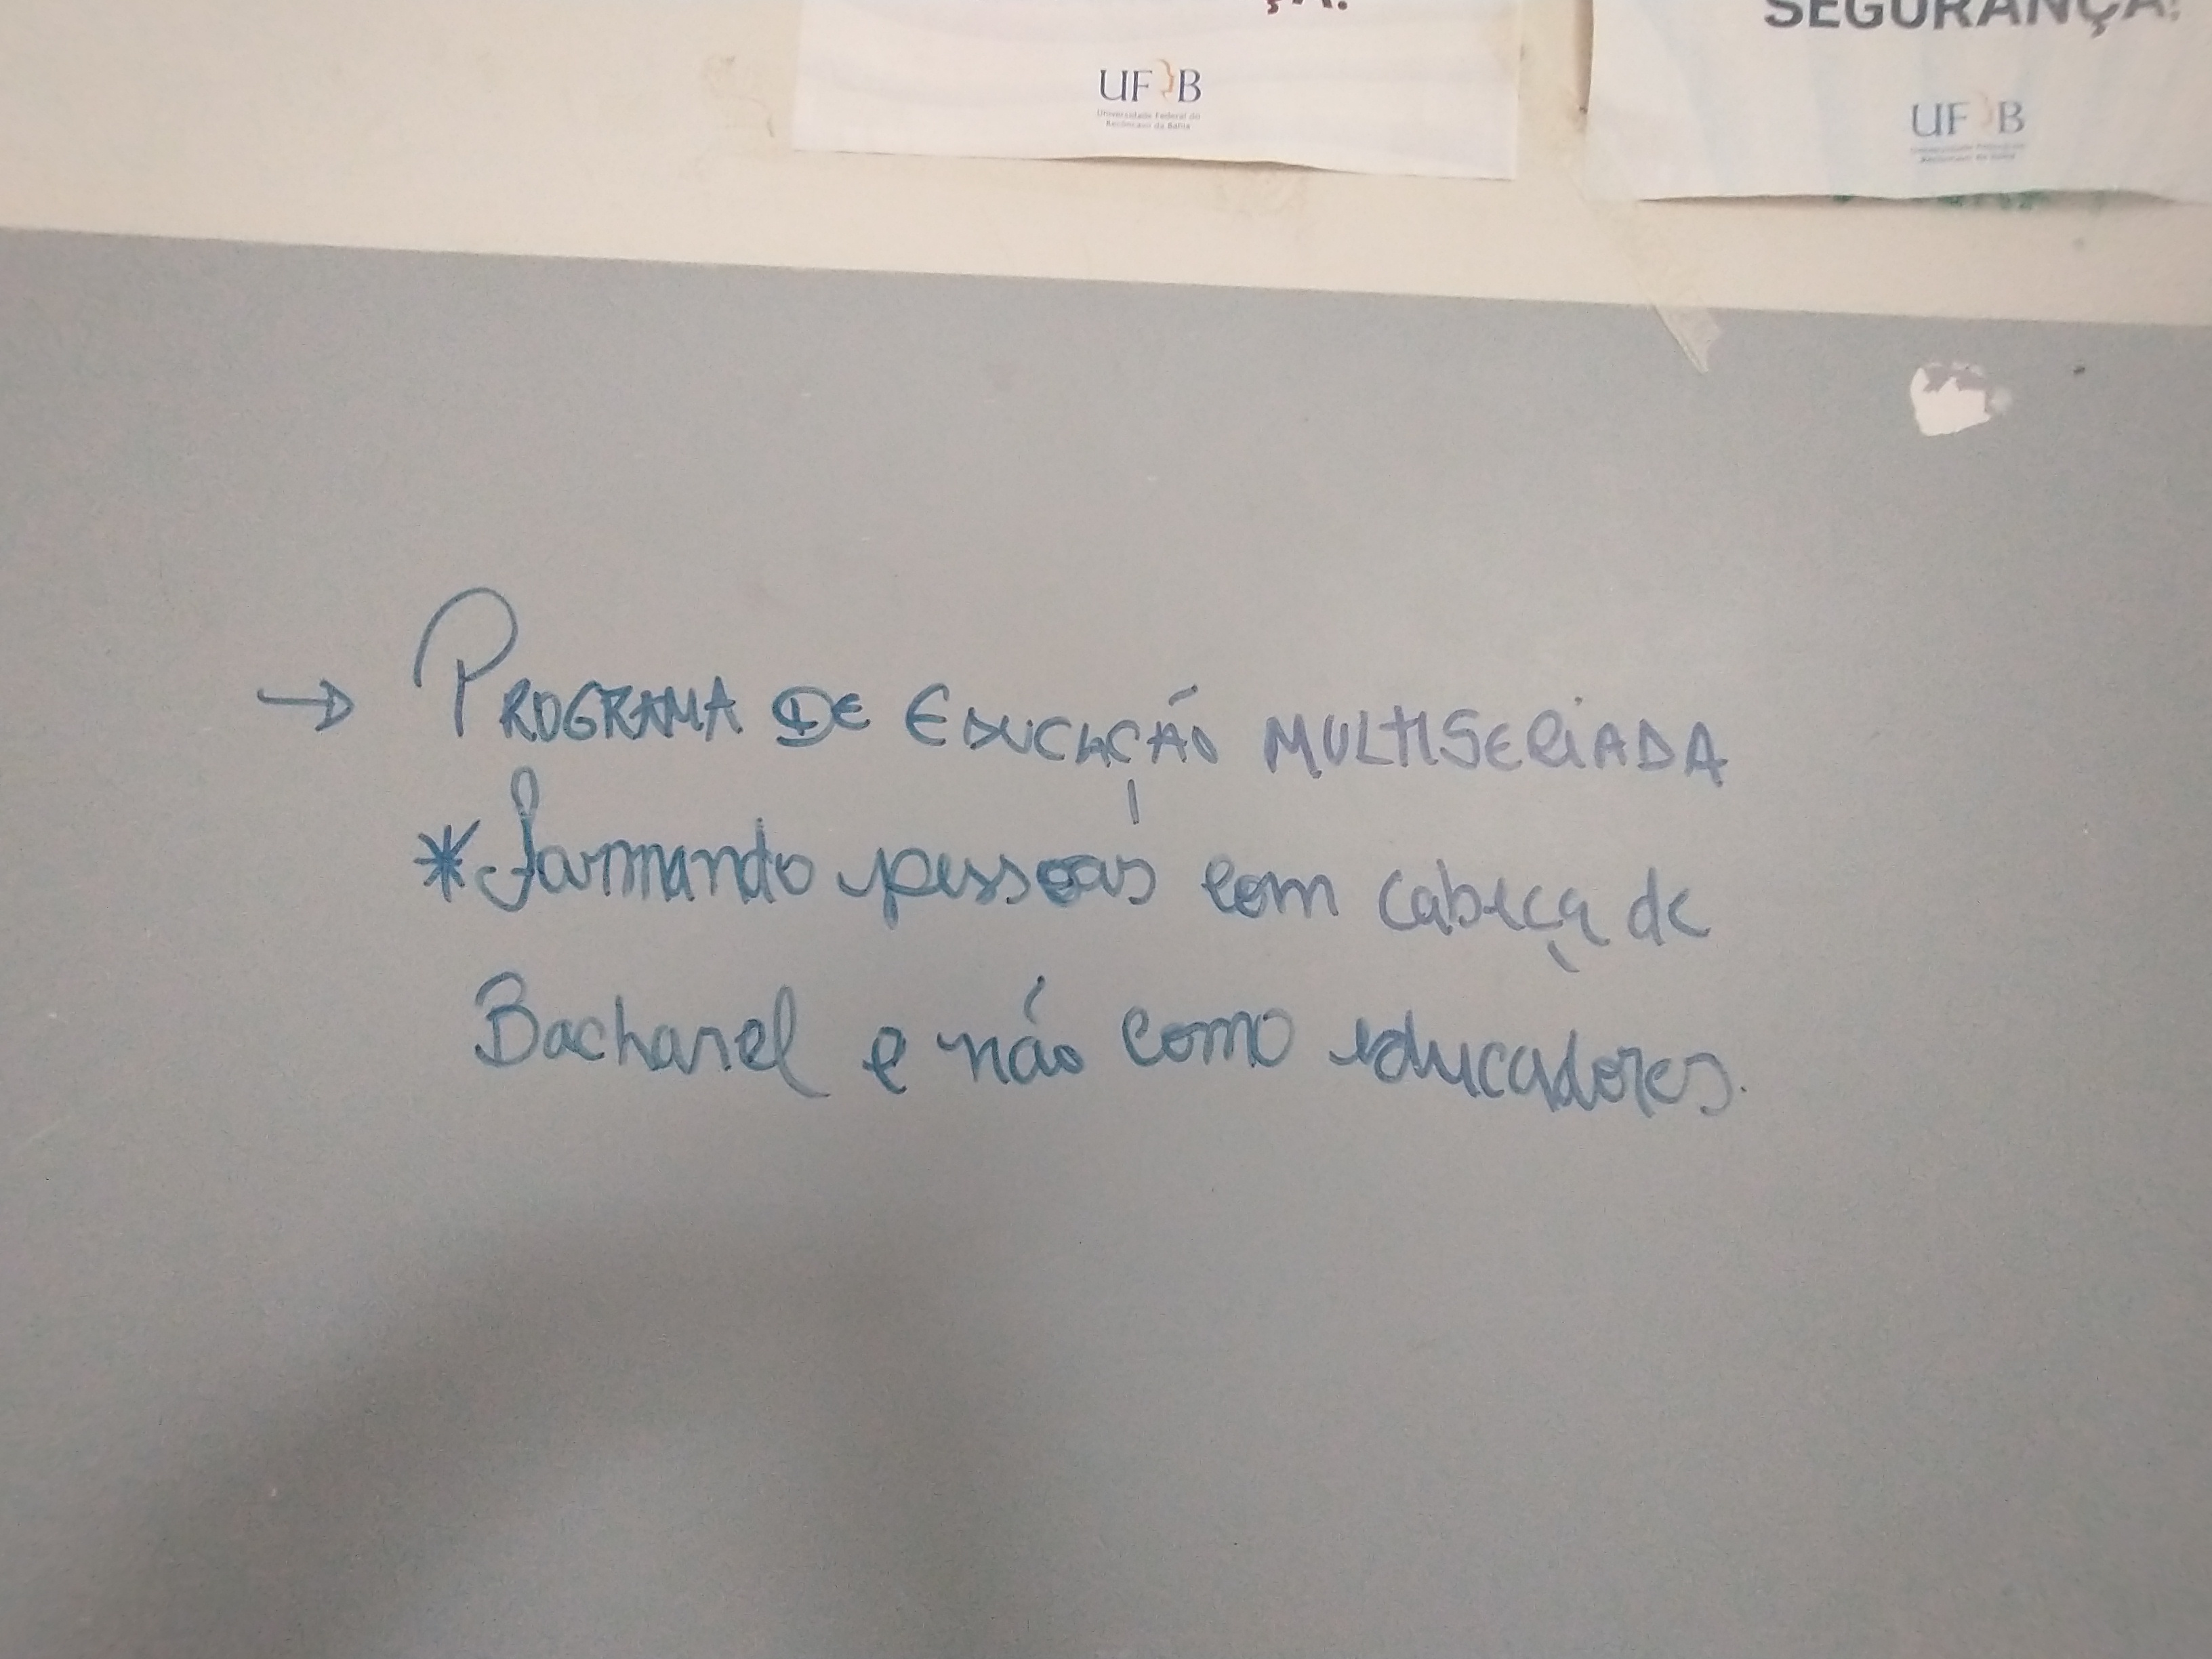 ÇA!
SEGURANÇA!
UFRB
Universidade Federal do
Recôncavo da Bahia
UFRB
Universidade Federal do
Recôncavo da Bahia
→ PROGRAMA DE EDUCAÇÃO MULTISERIADA
* formando pessoas com cabeça de
Bacharel e não como educadores.